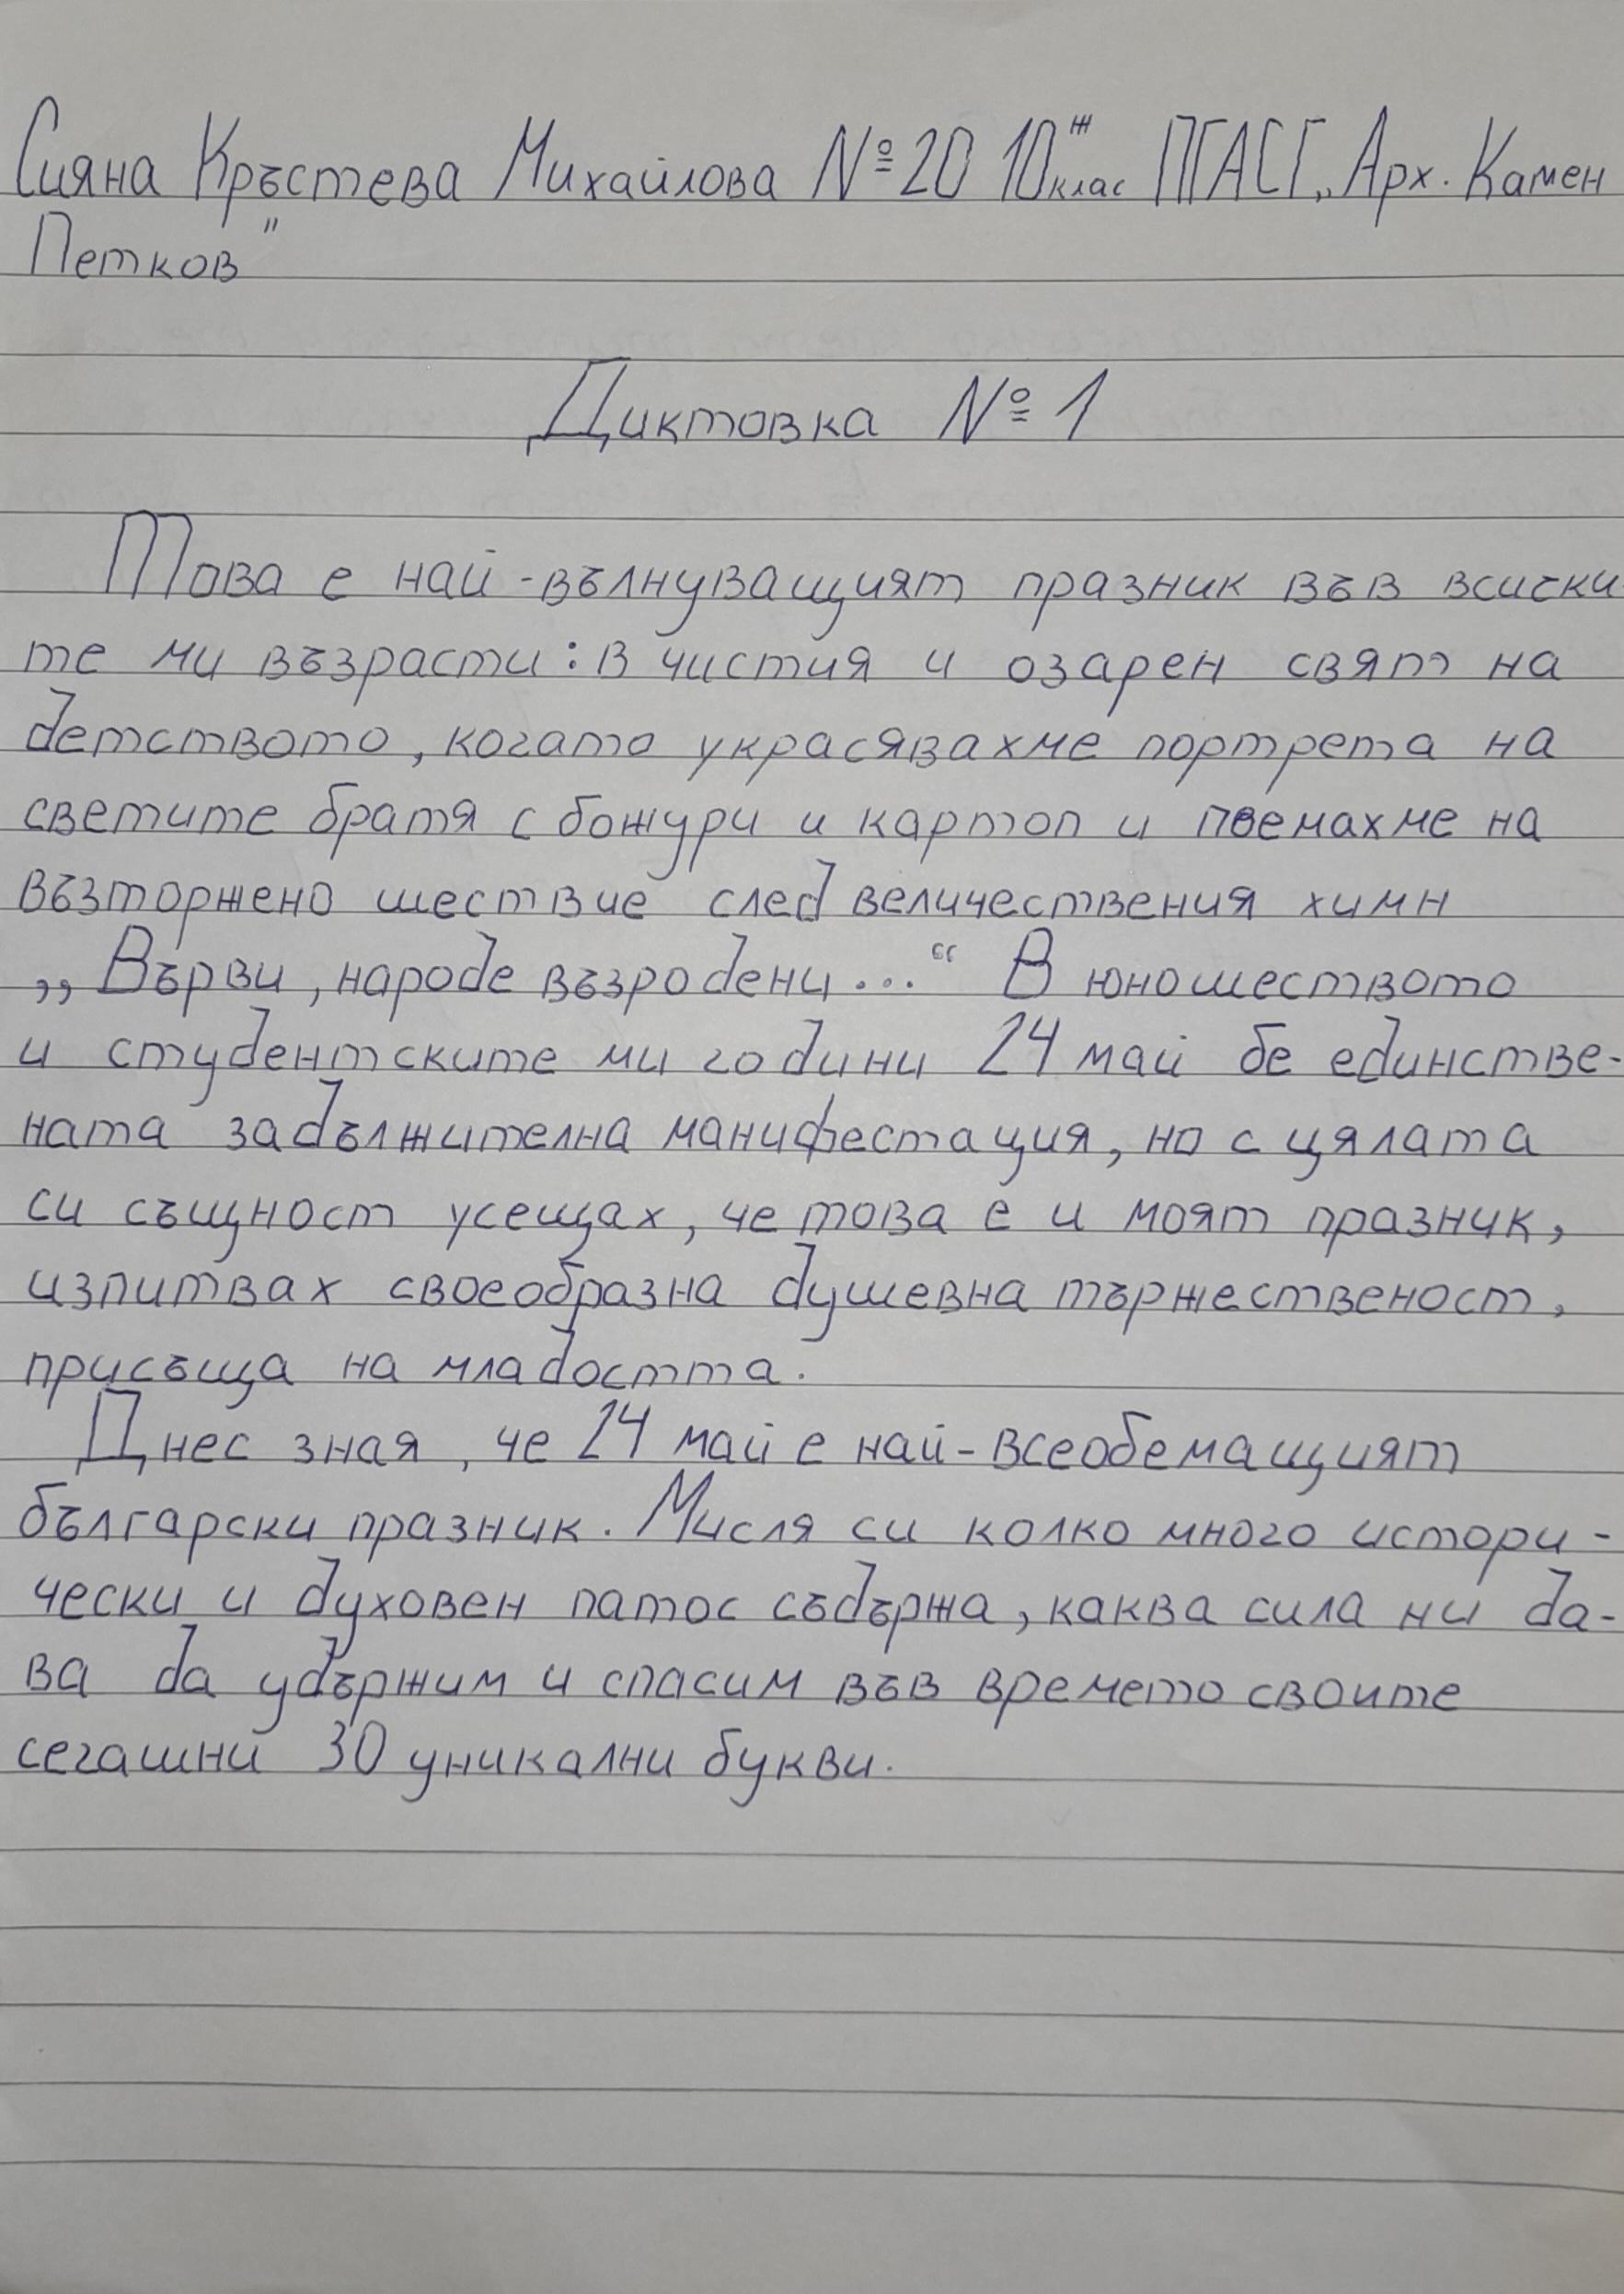 Сияна Кръстева Михайлова №20 10ж клас ПГАСГ„Арх. Камен
Петков"
Диктовка №1
Това е най-вълнуващият празник във всички
те ми възрасти: в чистия и озарен свят на
детството, когато украсявахме портрета на
светите братя с божури и картоп и поемахме на
възторжено шествие след величествения химн
„Върви, народе възродени..." В юношеството
и студентските ми години 24 май бе единстве-
ната задължителна манифестация, но с цялата
си същност усещах, че това е и моят празник,
изпитвах своеобразна душевна тържественост,
присъща на младостта.
Днес зная, че 24 май е най-всеобемащият
български празник. Мисля си колко много истори-
чески и духовен патос съдържа, каква сила ни да-
ва да удържим и спасим във времето своите
сегашни 30 уникални букви.